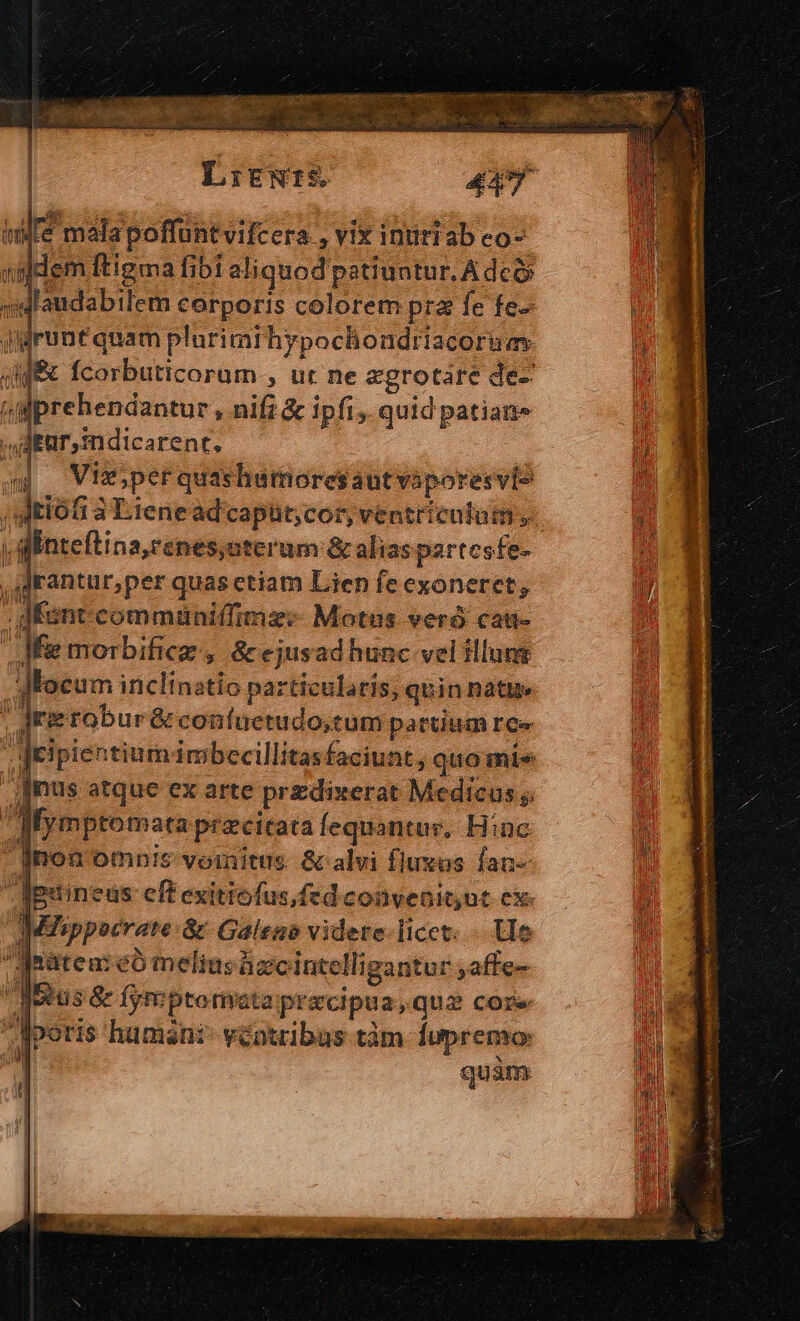 LIENIS. 447
mala possunt viscera, vix inuri ab eo-
dem stigma sibi aliquod patiuntur. Adeò
laudabilem corporis colorem præ se fe-
runt quam plurimi hypochondriacorum
& scorbuticorum, ut ne ægrotare de-
prehendantur, nisi & ipsi, quid patian-
tur, indicarent.
Viæ, per quas humores aut vapores vi-
tiosi à Liene ad caput, cor, ventriculum,
intestina, renes, uterum & alias partes fe-
rantur, per quas etiam Lien se exoneret,
sunt communissimæ. Motus verò cau-
sæ morbificæ, & ejus ad hunc vel illum
locum inclinatio particularis, quin natu-
ræ robur & consuetudo, tum partium re-
cipientium imbecillitas faciunt, quo mi-
nus atque ex arte prædixerat Medicus,
symptomata præcitata sequantur. Hinc
non omnis vomitus & alvi fluxus san-
guineus est exitiosus, sed convenit, ut ex
Hippocrate & Galeno videre licet. Ut
autem eò melius hæc intelligantur, affe-
ctus & symptomata præcipua, quæ cor-
poris humani ventribus tàm supremo
quàm